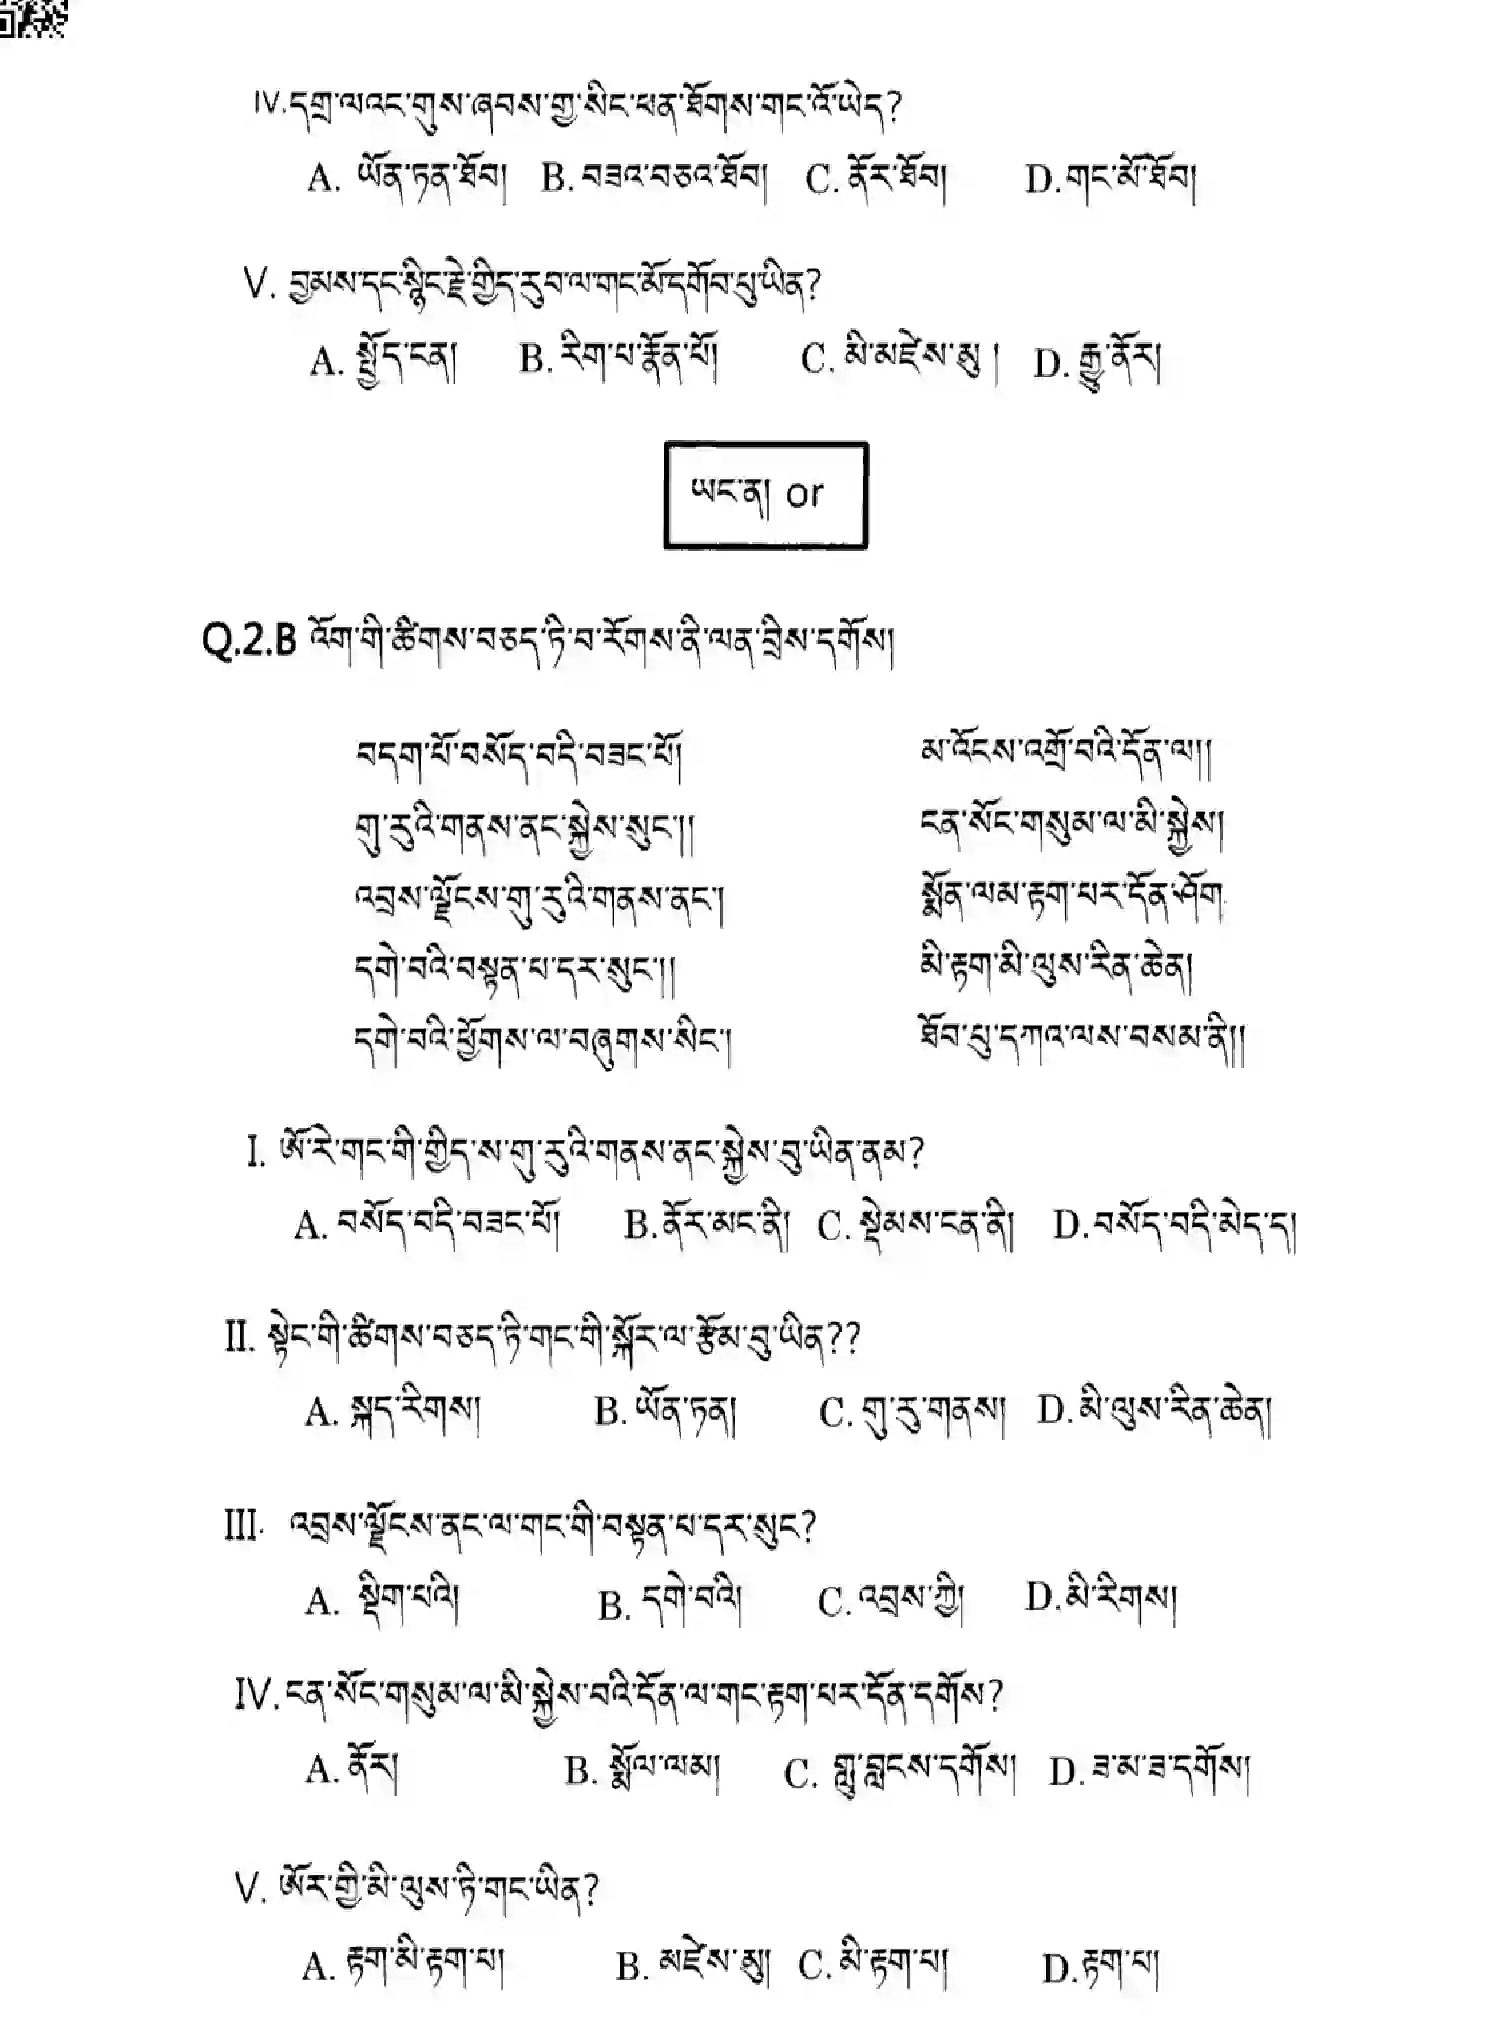 IV.དགྲ་ལའང་གུས་ཞབས་གྱ་སིང་ཕན་ཐོགས་གང་འོ་ཡེད?
A. ཡོན་ཏན་ཐོབ། B. བཟའ་བཅའ་ཐོབ། C. ནོར་ཐོབ། D.གང་མོ་ཐོབ།
V. བྱམས་དང་སྙིང་རྗེ་གྱིད་རུབ་ལ་གང་མོ་དགོབ་ཕུ་ཡིན?
A. སྤྱོད་ངན། B. རིག་པ་རྣོན་པོ། C. མི་མཛེས་མུ། D. རྒྱུ་ནོར།
ཡང་ན། or
Q.2.B འོག་གི་ཚིགས་བཅད་ཏི་བ་རོགས་ནི་ལན་བྲིས་དགོས།
བདག་པོ་བསོད་བདི་བཟང་པོ། མ་འོངས་འགྲོ་བའི་དོན་ལ།།
གུ་རུའི་གནས་ནང་སྐྱེས་སུང་།། ངན་སོང་གསུམ་ལ་མི་སྐྱེས།
འབྲས་ལྗོངས་གུ་རུའི་གནས་ནང་། སྨོན་ལམ་རྟག་པར་དོན་ཤོག
དགེ་བའི་བསྟན་པ་དར་སུང་།། མི་རྟག་མི་ལུས་རིན་ཆེན།
དགེ་བའི་ཕྱོགས་ལ་བཞུགས་སིང་། ཐོབ་ཕུ་དཀའ་ལས་བསམ་ནི།།
I. ཨོ་རེ་གང་གི་གྱིད་ས་གུ་རུའི་གནས་ནང་སྐྱེས་བུ་ཡིན་ནམ?
A. བསོད་བདི་བཟང་པོ། B.ནོར་མང་ནི། C. སྡེམས་ངན་ནི། D.བསོད་བདི་མེད་ད།
II. སྟེང་གི་ཚིགས་བཅད་ཏི་གང་གི་སྐོར་ལ་རྩོམ་བུ་ཡིན??
A. སྐད་རིགས། B. ཡོན་ཏན། C. གུ་རུ་གནས། D.མི་ལུས་རིན་ཆེན།
III. འབྲས་ལྗོངས་ནང་ལ་གང་གི་བསྟན་པ་དར་སུང?
A. སྡིག་པའི། B. དགེ་བའི། C.འབྲས་ཀྱི། D.མི་རིགས།
IV.ངན་སོང་གསུམ་ལ་མི་སྐྱེས་བའི་དོན་ལ་གང་རྟག་པར་དོན་དགོས?
A. ནོར། B. སྨོལ་ལམ། C. གླུ་བླངས་དགོས། D. ཟ་མ་ཟ་དགོས།
V. ཨོར་གྱི་མི་ལུས་ཏི་གང་ཡིན?
A. རྟག་མི་རྟག་པ། B. མཛེས་མུ། C. མི་རྟག་པ། D.རྟག་པ།